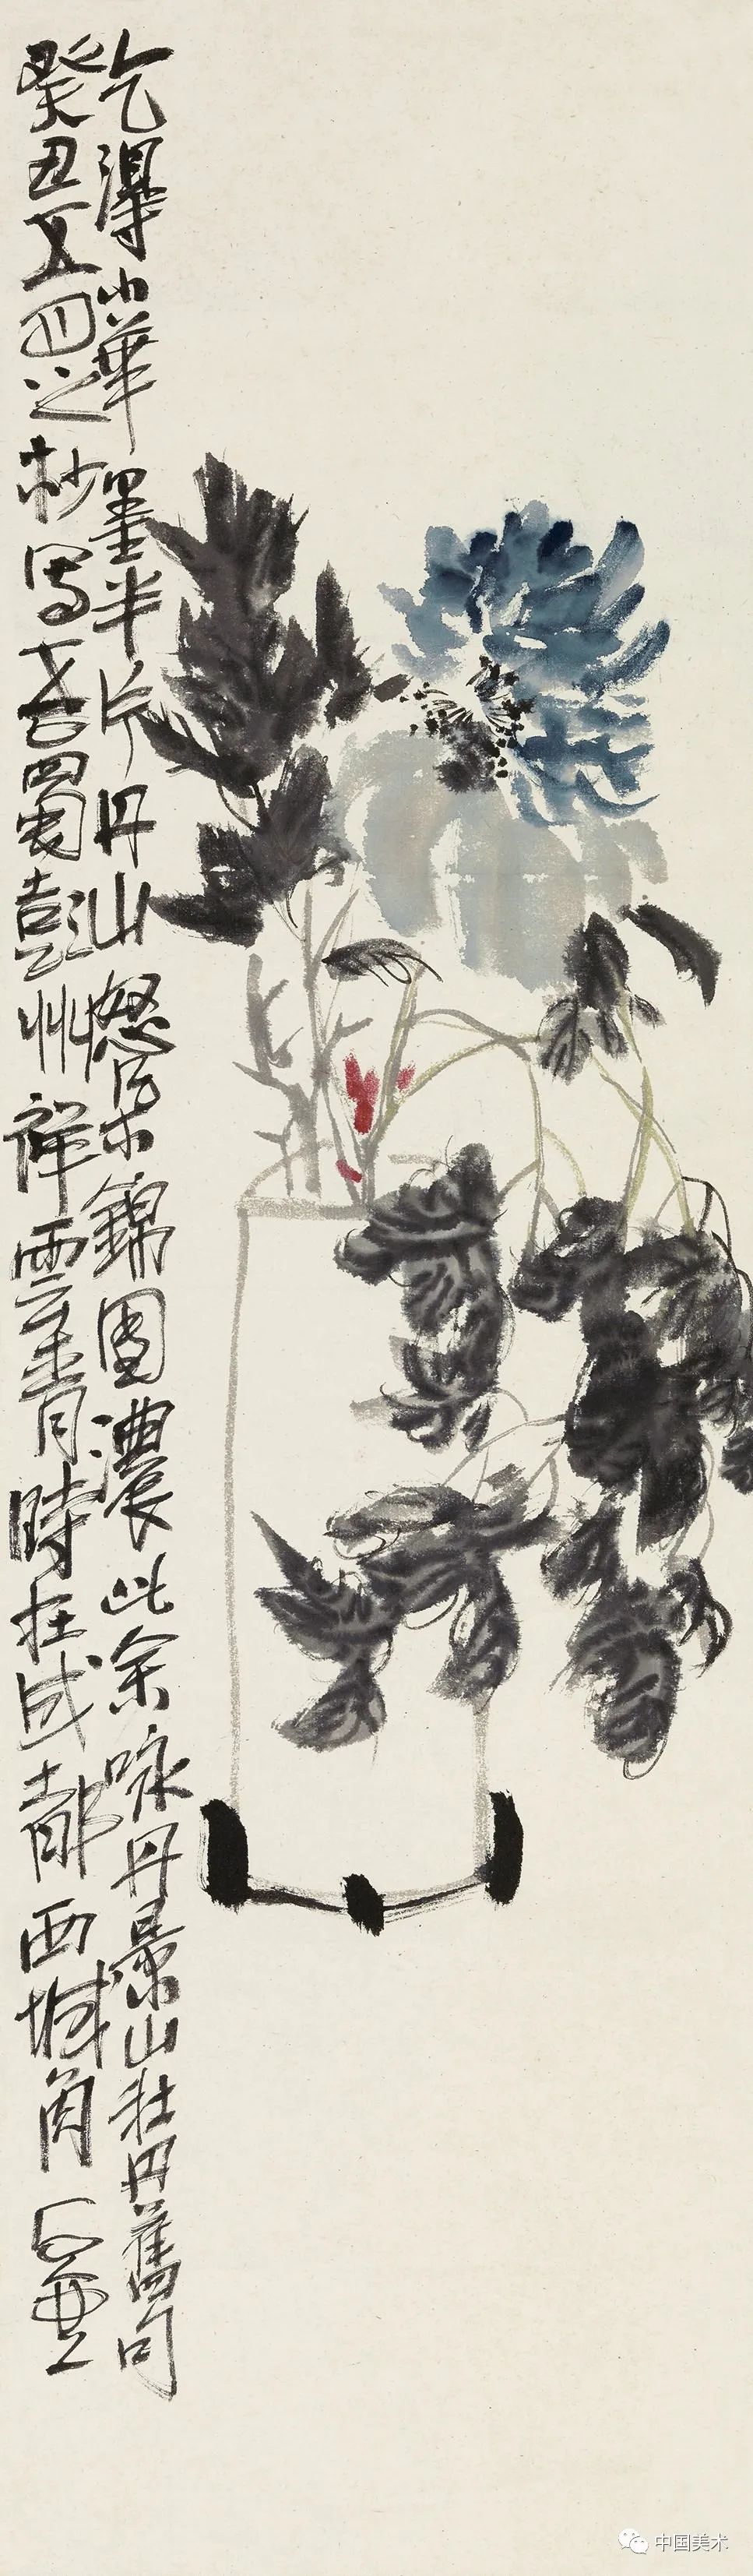 乞淂小華墨半片丹山怒染錦園濃此余咏丹景山牡丹舊句
癸丑五四之杪寫吾蜀彭州祥雲青時在成都西城角石壺
中国美术